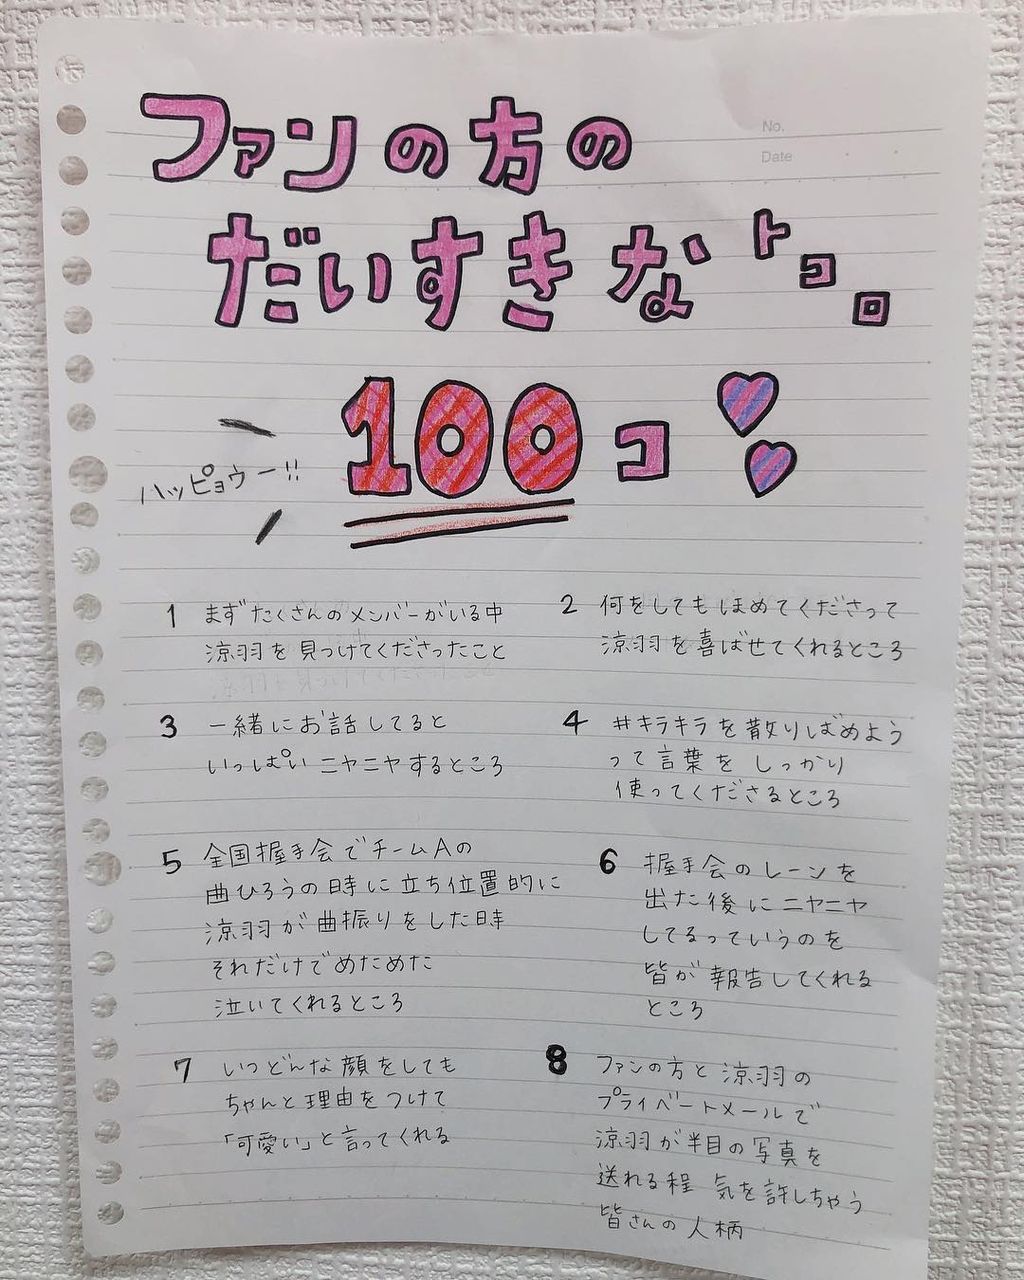 No.
Date
ファンの方の
だいすきなトコロ
ハッピョウー!!
100コ
1 まずたくさんのメンバーがいる中
涼羽を見つけてくださったこと
2 何をしてもほめてくださって
涼羽を喜ばせてくれるところ
3 一緒にお話してると
いっぱいニヤニヤするところ
4 #キラキラを散りばめよう
って言葉をしっかり
使ってくださるところ
5 全国握手会でチームAの
曲ひろうの時に立ち位置的に
涼羽が曲振りをした時
それだけでめためた
泣いてくれるところ
6 握手会のレーンを
出た後にニヤニヤ
してるっていうのを
皆が報告してくれる
ところ
7 いつどんな顔をしても
ちゃんと理由をつけて
「可愛い」と言ってくれる
8 ファンの方と涼羽の
プライベートメールで
涼羽が半目の写真を
送れる程 気を許しちゃう
皆さんの人柄